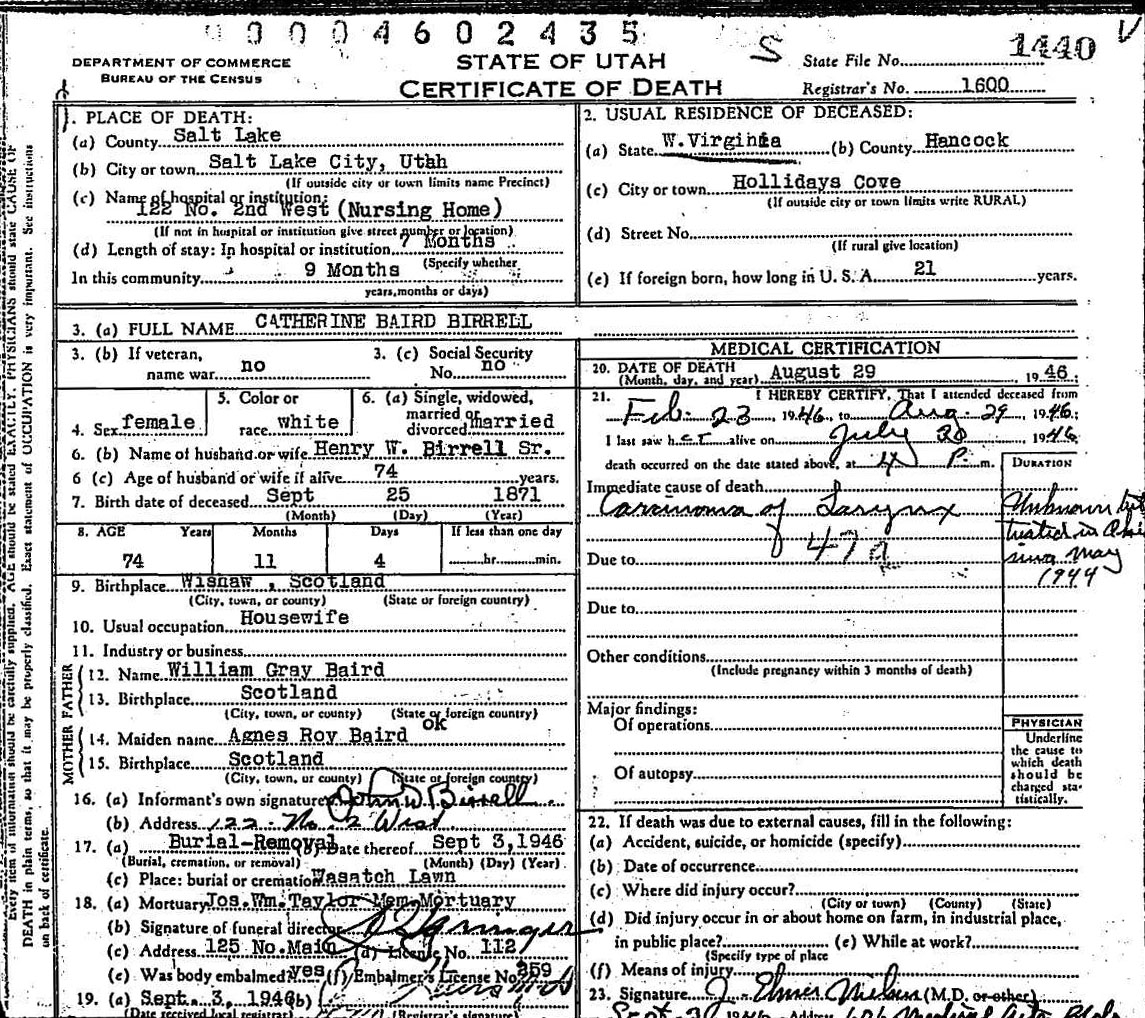 0004602435
DEPARTMENT OF COMMERCE
BUREAU OF THE CENSUS
STATE OF UTAH
CERTIFICATE OF DEATH
S
State File No. 1440
Registrar's No. 1600
1. PLACE OF DEATH:
(a) County Salt Lake
(b) City or town Salt Lake City, Utah
(If outside city or town limits name Precinct)
(c) Name of hospital or institution:
122 No. 2nd West (Nursing Home)
(If not in hospital or institution give street number or location)
(d) Length of stay: In hospital or institution 7 Months
(Specify whether
In this community 9 Months
years, months or days)
2. USUAL RESIDENCE OF DECEASED:
(a) State W. Virginia (b) County Hancock
(c) City or town Hollidays Cove
(If outside city or town limits write RURAL)
(d) Street No.
(If rural give location)
(e) If foreign born, how long in U. S. A. 21 years.
3. (a) FULL NAME CATHERINE BAIRD BIRRELL
3. (b) If veteran, name war no
3. (c) Social Security No. no
4. Sex female
5. Color or race white
6. (a) Single, widowed, married or divorced married
6. (b) Name of husband or wife Henry W. Birrell Sr.
6 (c) Age of husband or wife if alive 74 years.
7. Birth date of deceased Sept 25 1871
(Month) (Day) (Year)
8. AGE Years Months Days If less than one day
74 11 4 hr. min.
9. Birthplace Wishaw , Scotland
(City, town, or county) (State or foreign country)
10. Usual occupation Housewife
11. Industry or business
FATHER
12. Name William Gray Baird
13. Birthplace Scotland
(City, town, or county) (State or foreign country)
MOTHER
14. Maiden name Agnes Roy Baird ok
15. Birthplace Scotland
(City, town, or county) (State or foreign country)
16. (a) Informant's own signature John W. Birrell
(b) Address 122 - No. 2 West
17. (a) Burial-Removal (b) Date thereof Sept 3, 1946
(Burial, cremation, or removal) (Month) (Day) (Year)
(c) Place: burial or cremation Wasatch Lawn
18. (a) Mortuary Jos. Wm. Taylor Mem. Mortuary
(b) Signature of funeral director
(c) Address 125 No. Main (d) License No. 112
(e) Was body embalmed yes (f) Embalmer's License No 359
19. (a) Sept. 3, 1946 (b)
(Date received local registrar) (Registrar's signature)
MEDICAL CERTIFICATION
20. DATE OF DEATH
(Month, day, and year) August 29 1946
21. I HEREBY CERTIFY, That I attended deceased from
Feb. 23, 1946, to Aug. 29, 1946;
I last saw her alive on July 30 1946
death occurred on the date stated above, at 4 P. m.
DURATION
Immediate cause of death
Carcinoma of Larynx
47a
Unknown but
treated in
since May
1944
Due to
Due to
Other conditions
(Include pregnancy within 3 months of death)
Major findings:
Of operations
Of autopsy
PHYSICIAN
Underline
the cause to
which death
should be
charged sta-
tistically.
22. If death was due to external causes, fill in the following:
(a) Accident, suicide, or homicide (specify)
(b) Date of occurrence
(c) Where did injury occur?
(City or town) (County) (State)
(d) Did injury occur in or about home on farm, in industrial place,
in public place? (e) While at work?
(Specify type of place
(f) Means of injury
23. Signature J. Elmer Nielsen (M.D. or other)
Sept-3 1946 Address 606 Medical Arts Bldg
Every item of information should be carefully supplied. AGE should be stated EXACTLY. PHYSICIANS should state CAUSE OF
DEATH in plain terms, so that it may be properly classified. Exact statement of OCCUPATION is very important. See instructions
on back of certificate.